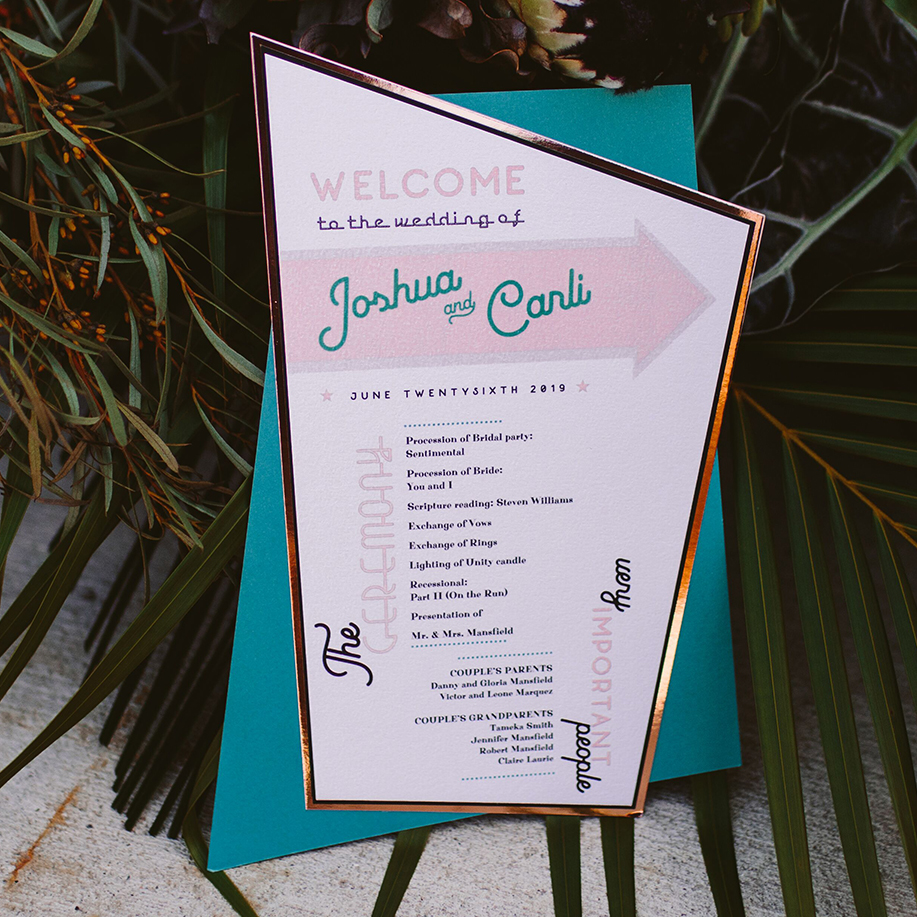 WELCOME
to the wedding of
Joshua and Carli
JUNE TWENTYSIXTH 2019
The CEREMONY
Procession of Bridal party:
Sentimental
Procession of Bride:
You and I
Scripture reading: Steven Williams
Exchange of Vows
Exchange of Rings
Lighting of Unity candle
Recessional:
Part II (On the Run)
Presentation of
Mr. & Mrs. Mansfield
very IMPORTANT people
COUPLE'S PARENTS
Danny and Gloria Mansfield
Victor and Leone Marquez
COUPLE'S GRANDPARENTS
Tameka Smith
Jennifer Mansfield
Robert Mansfield
Claire Laurie